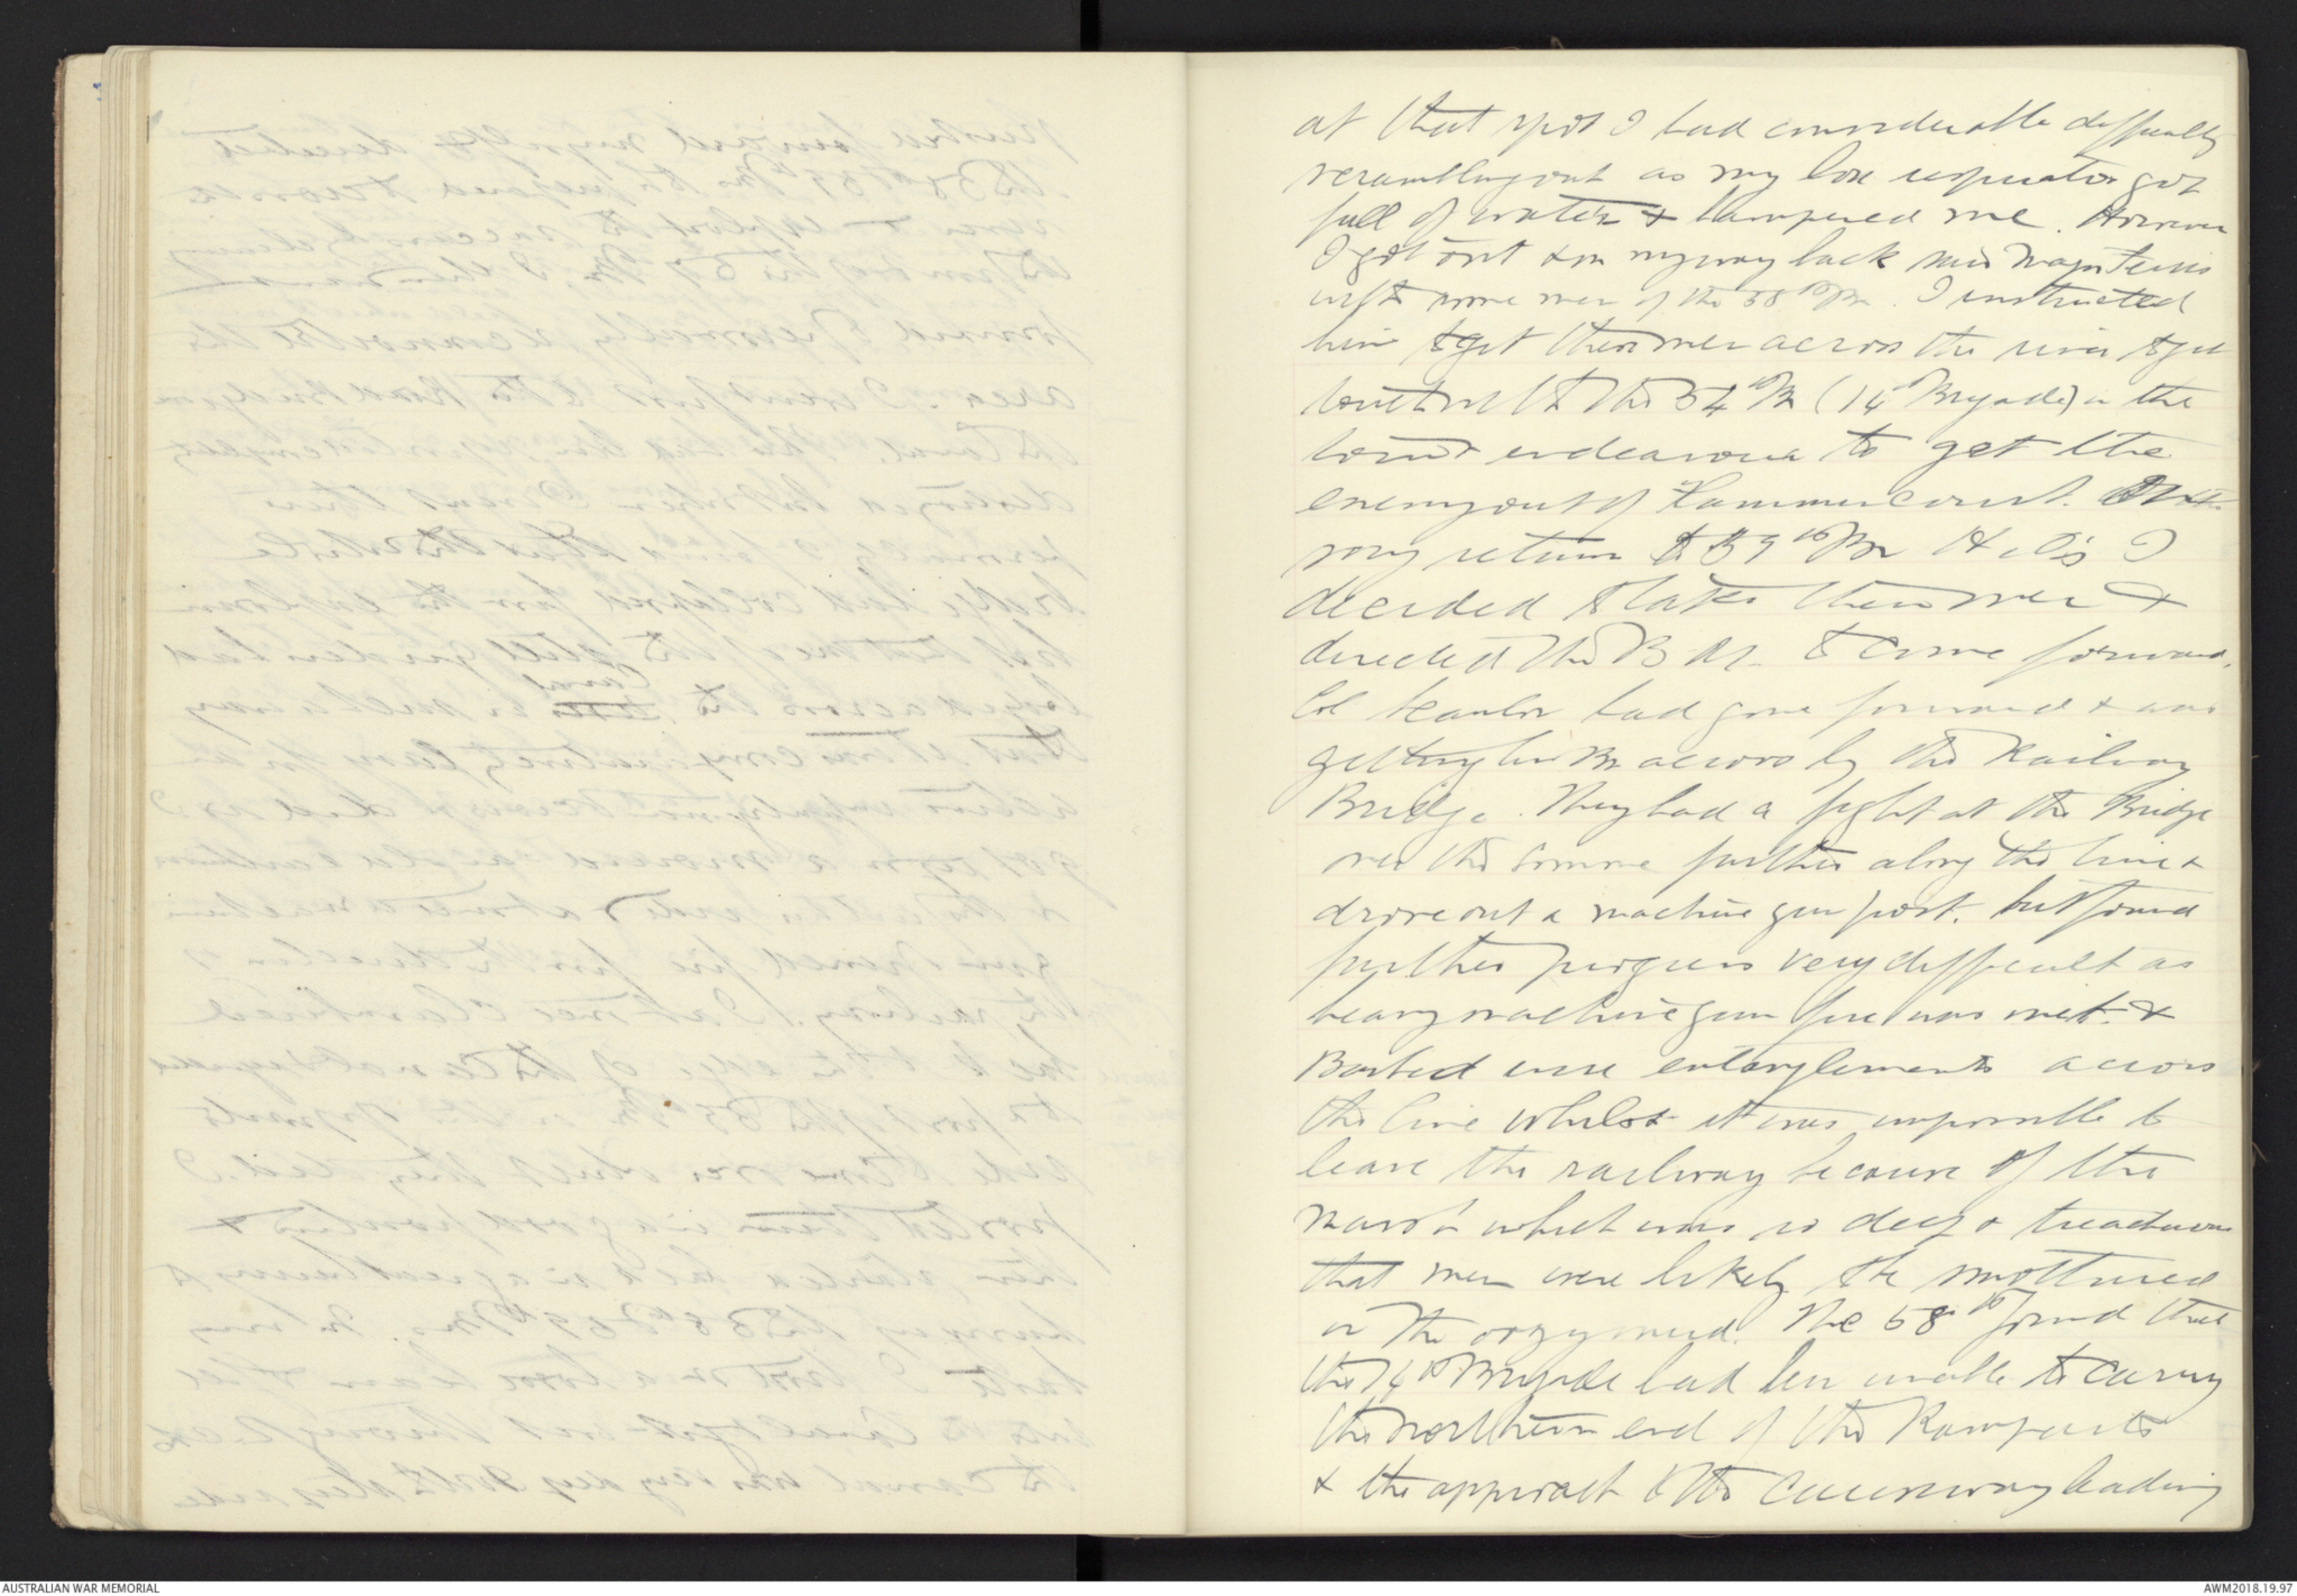 at that spot I had considerable difficulty
scrambling out as my box respirator got
full of water & hampered me. However
I got out & on my way back met Major Ferres
with some men of the 58th Bn. I instructed
him to get these men across the river & get
touch with the 54th Bn (14th Brigade) in the
town & endeavour to get the
enemy out of Flammincourt.
my return to 59th Bn H.Q's I
decided to take these men &
directed the B.M. to come forward.
Col Scanlan had gone forward & was
getting his Bn across by the Railway
Bridge. They had a fight at the Bridge
over the Somme further along the line &
drove out a machine gun post. but found
further progress very difficult as
heavy machine gun fire was met. &
Barbed wire entanglements across
the line whilst it was impossible to
leave the railway because of the
marsh which was so deep & treacherous
that men were likely to be smothered
in the oozy mud. The 58th found that
the 14th Brigade had been unable to carry
the northern end of the Ramparts
& the approach to the Causeway leading
AUSTRALIAN WAR MEMORIAL
AWM2018.19.97